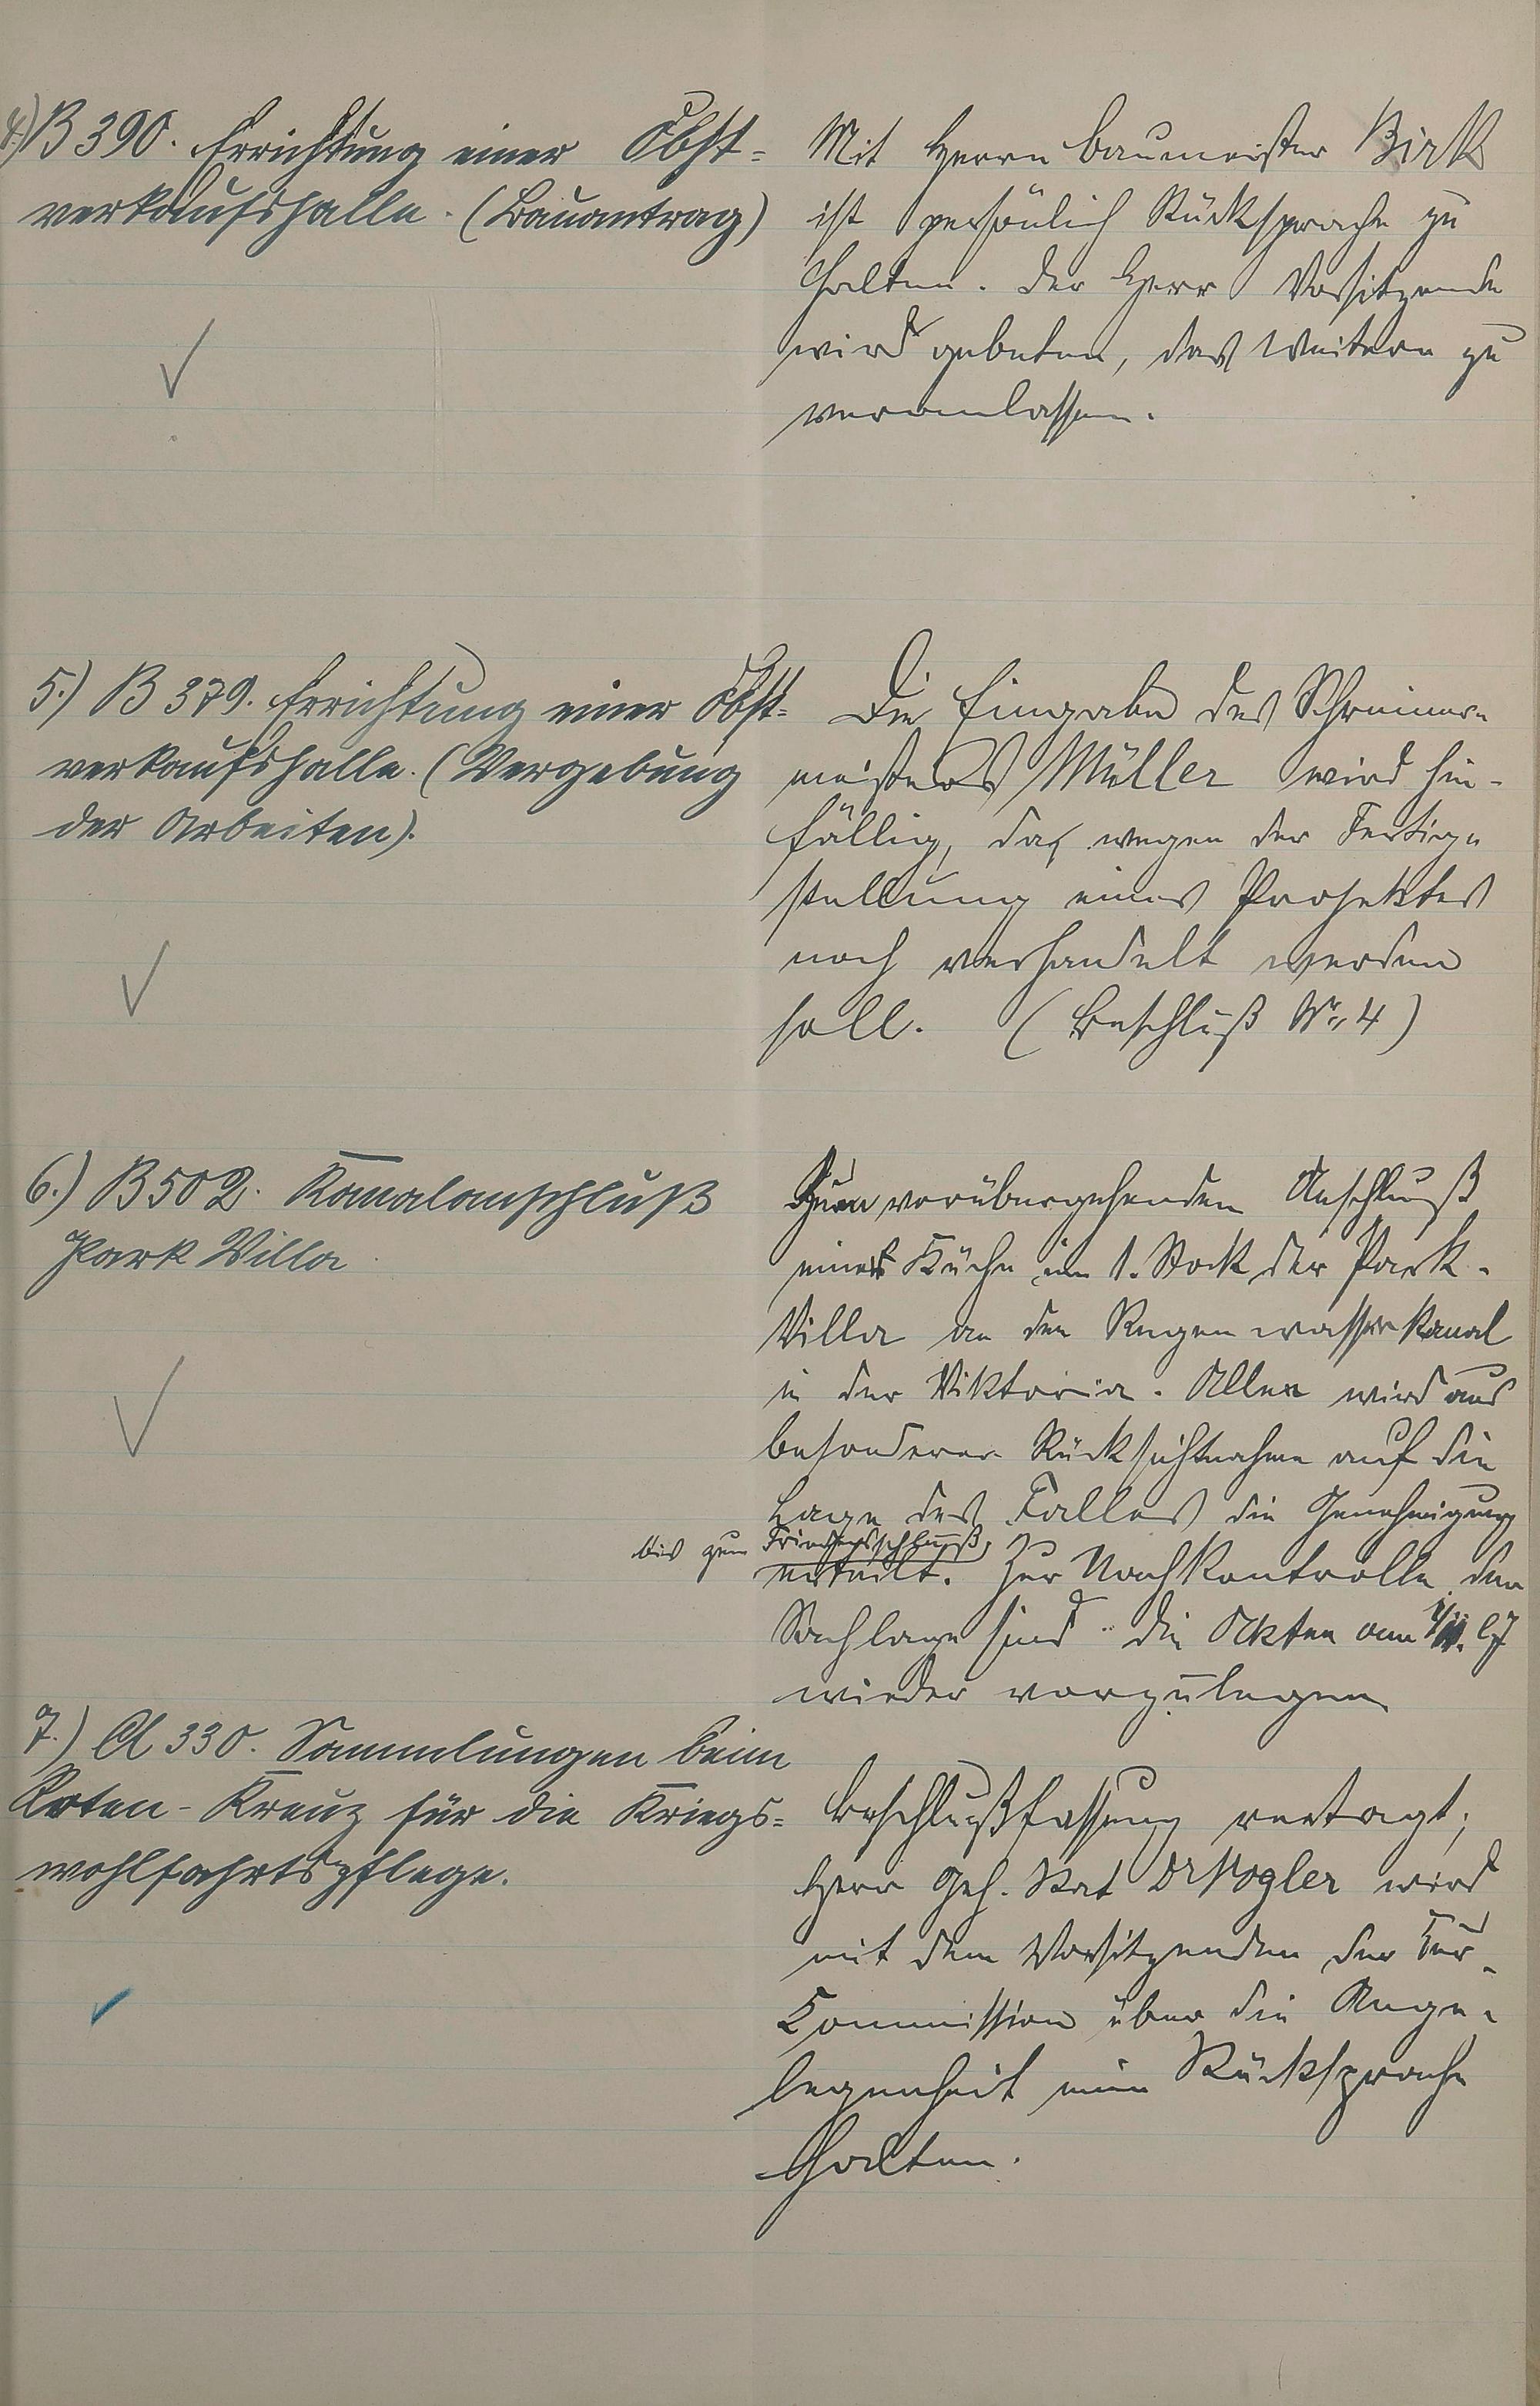 4.) B 390. Errichtung einer Obst=
verkaufshalle. (Bauantrag)
Mit Herrn Baumeister Birk
ist persönlich Rücksprache zu
halten. Der Herr Vorsitzende
wird gebeten, das Weitere zu
veranlassen.
5.) B 379. Errichtung einer Obst=
verkaufshalle. (Vergebung
der Arbeiten).
Die Eingabe des Schreiner-
meisters Müller wird hin-
fällig, da wegen der Fertig-
stellung eines Projektes
noch verhandelt werden
soll. (Beschluß Nr. 4)
6.) B 502. Kanalanschluß
Park Villa
Zum vorübergehenden Anschluß
einer Küche im 1. Stock der Park-
Villa an den Regenwasserkanal
in der Viktoria-Allee wird aus
besonderer Rücksichtnahme auf die
Lage des Falles die Genehmigung
bis zum Friedensschluß
erteilt. Zur Nachkontrolle der
Sachlage sind die Akten am
wieder vorzulegen.
7.) A 330. Sammlungen beim
Roten-Kreuz für die Kriegs=
wohlfahrtspflege.
Beschlußfassung vertagt;
Herr Geh. Rat Dr Vogler wird
mit dem Vorsitzenden der Kur-
Kommission über die Ange-
legenheit eine Rücksprache
halten.